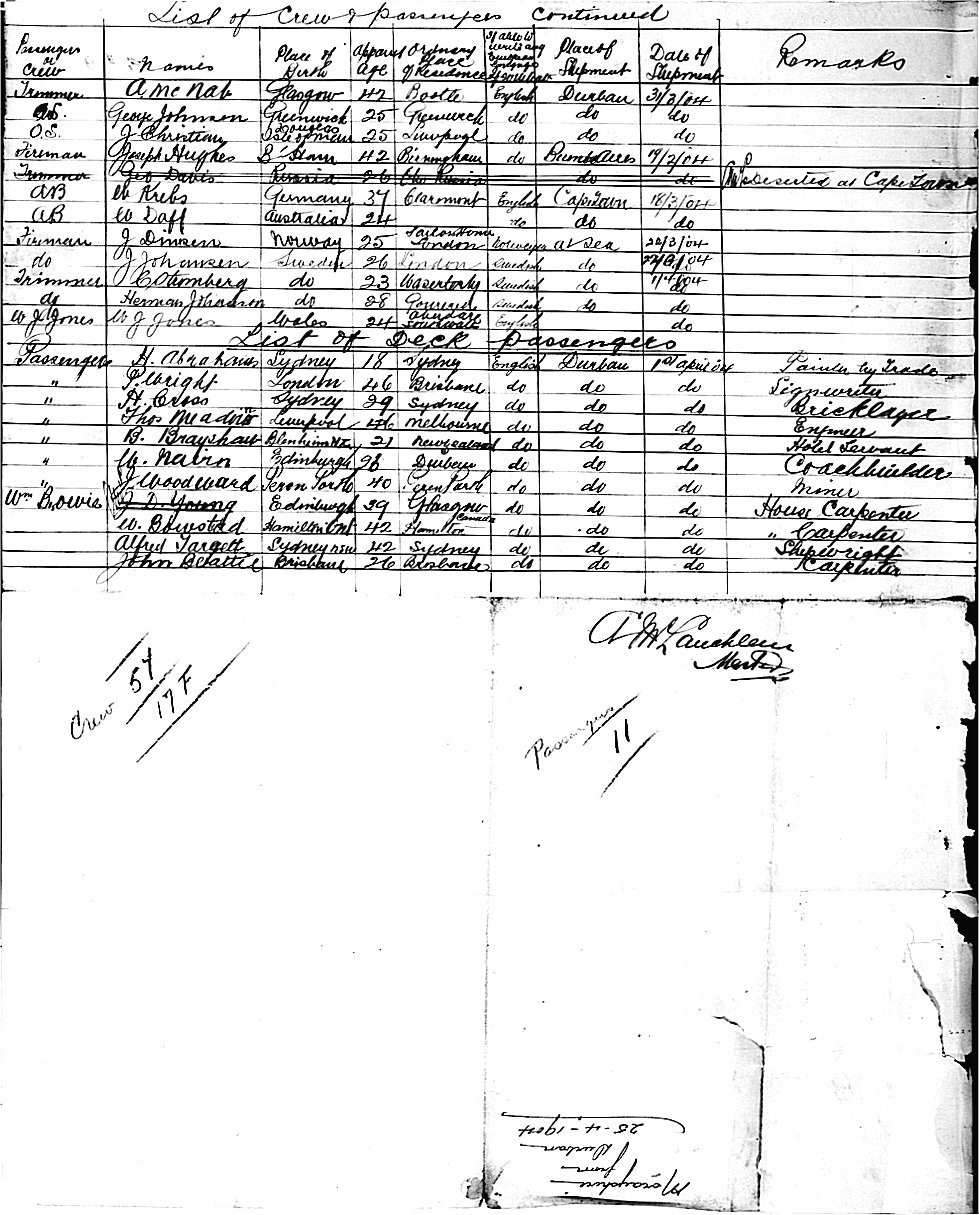 List of Crew & passengers Continued
Passengers or Crew Names Place of Birth Apparent Age Ordinary Place of Residence If able to write any European Language Place of Shipment Date of Shipment Remarks
Trimmer A McNab Glasgow 42 Bootle English Durban 31/3/04
O.S. George Johnson Greenwich 25 Greenwich do do do
O.S. J Christian Douglas Isle of Man 25 Liverpool do do do
Fireman Joseph Hughes B'Ham 42 Birmingham do 19/2/04
Trimmer Geo Davis Russia 26 Russia do do Deserted at Cape Town
AB W Krebs Germany 37 Claremont English Cape Town 18/3/04
AB W Daff Australia 24 do do do
Fireman J Dinsen Norway 25 Sailors Home London at Sea 22/3/04
do J Johansen Sweden 26 London Swedish do
Trimmer C Stromberg do 23 Swedish do 1/4/04
do Herman Johanson do 28 Swedish do do
W J Jones W J Jones Wales 24 Aberdare English do
List of Deck passengers
Passengers H. Abrahams Sydney 18 Sydney English Durban 1st April 04 Painter by Trade
" P. Wright London 46 Brisbane do do do Signwriter
" H. Cross Sydney 29 Sydney do do do Bricklayer
" Thos Meadows Liverpool 46 Melbourne do do do Engineer
" B. Brayshaw Blenheim 21 New Zealand do do do Hotel Servant
" W. Nairn Edinburgh 28 Durban do do do Coachbuilder
" J Woodward 40 do do do Miner
Wm Bowie J. D. Young Edinburgh 39 Glasgow do do do House Carpenter
W. Bowsted Hamilton Ont 42 Hamilton Canada do do do " Carpenter
Alfred Targett Sydney NSW 42 Sydney do do do Shipwright
John Beattie Brisbane 26 Brisbane do do do Carpenter
A McLauchlan
Master
Crew 54
17 F
Passengers
11
Morayshire
from
Durban
25-4-1904